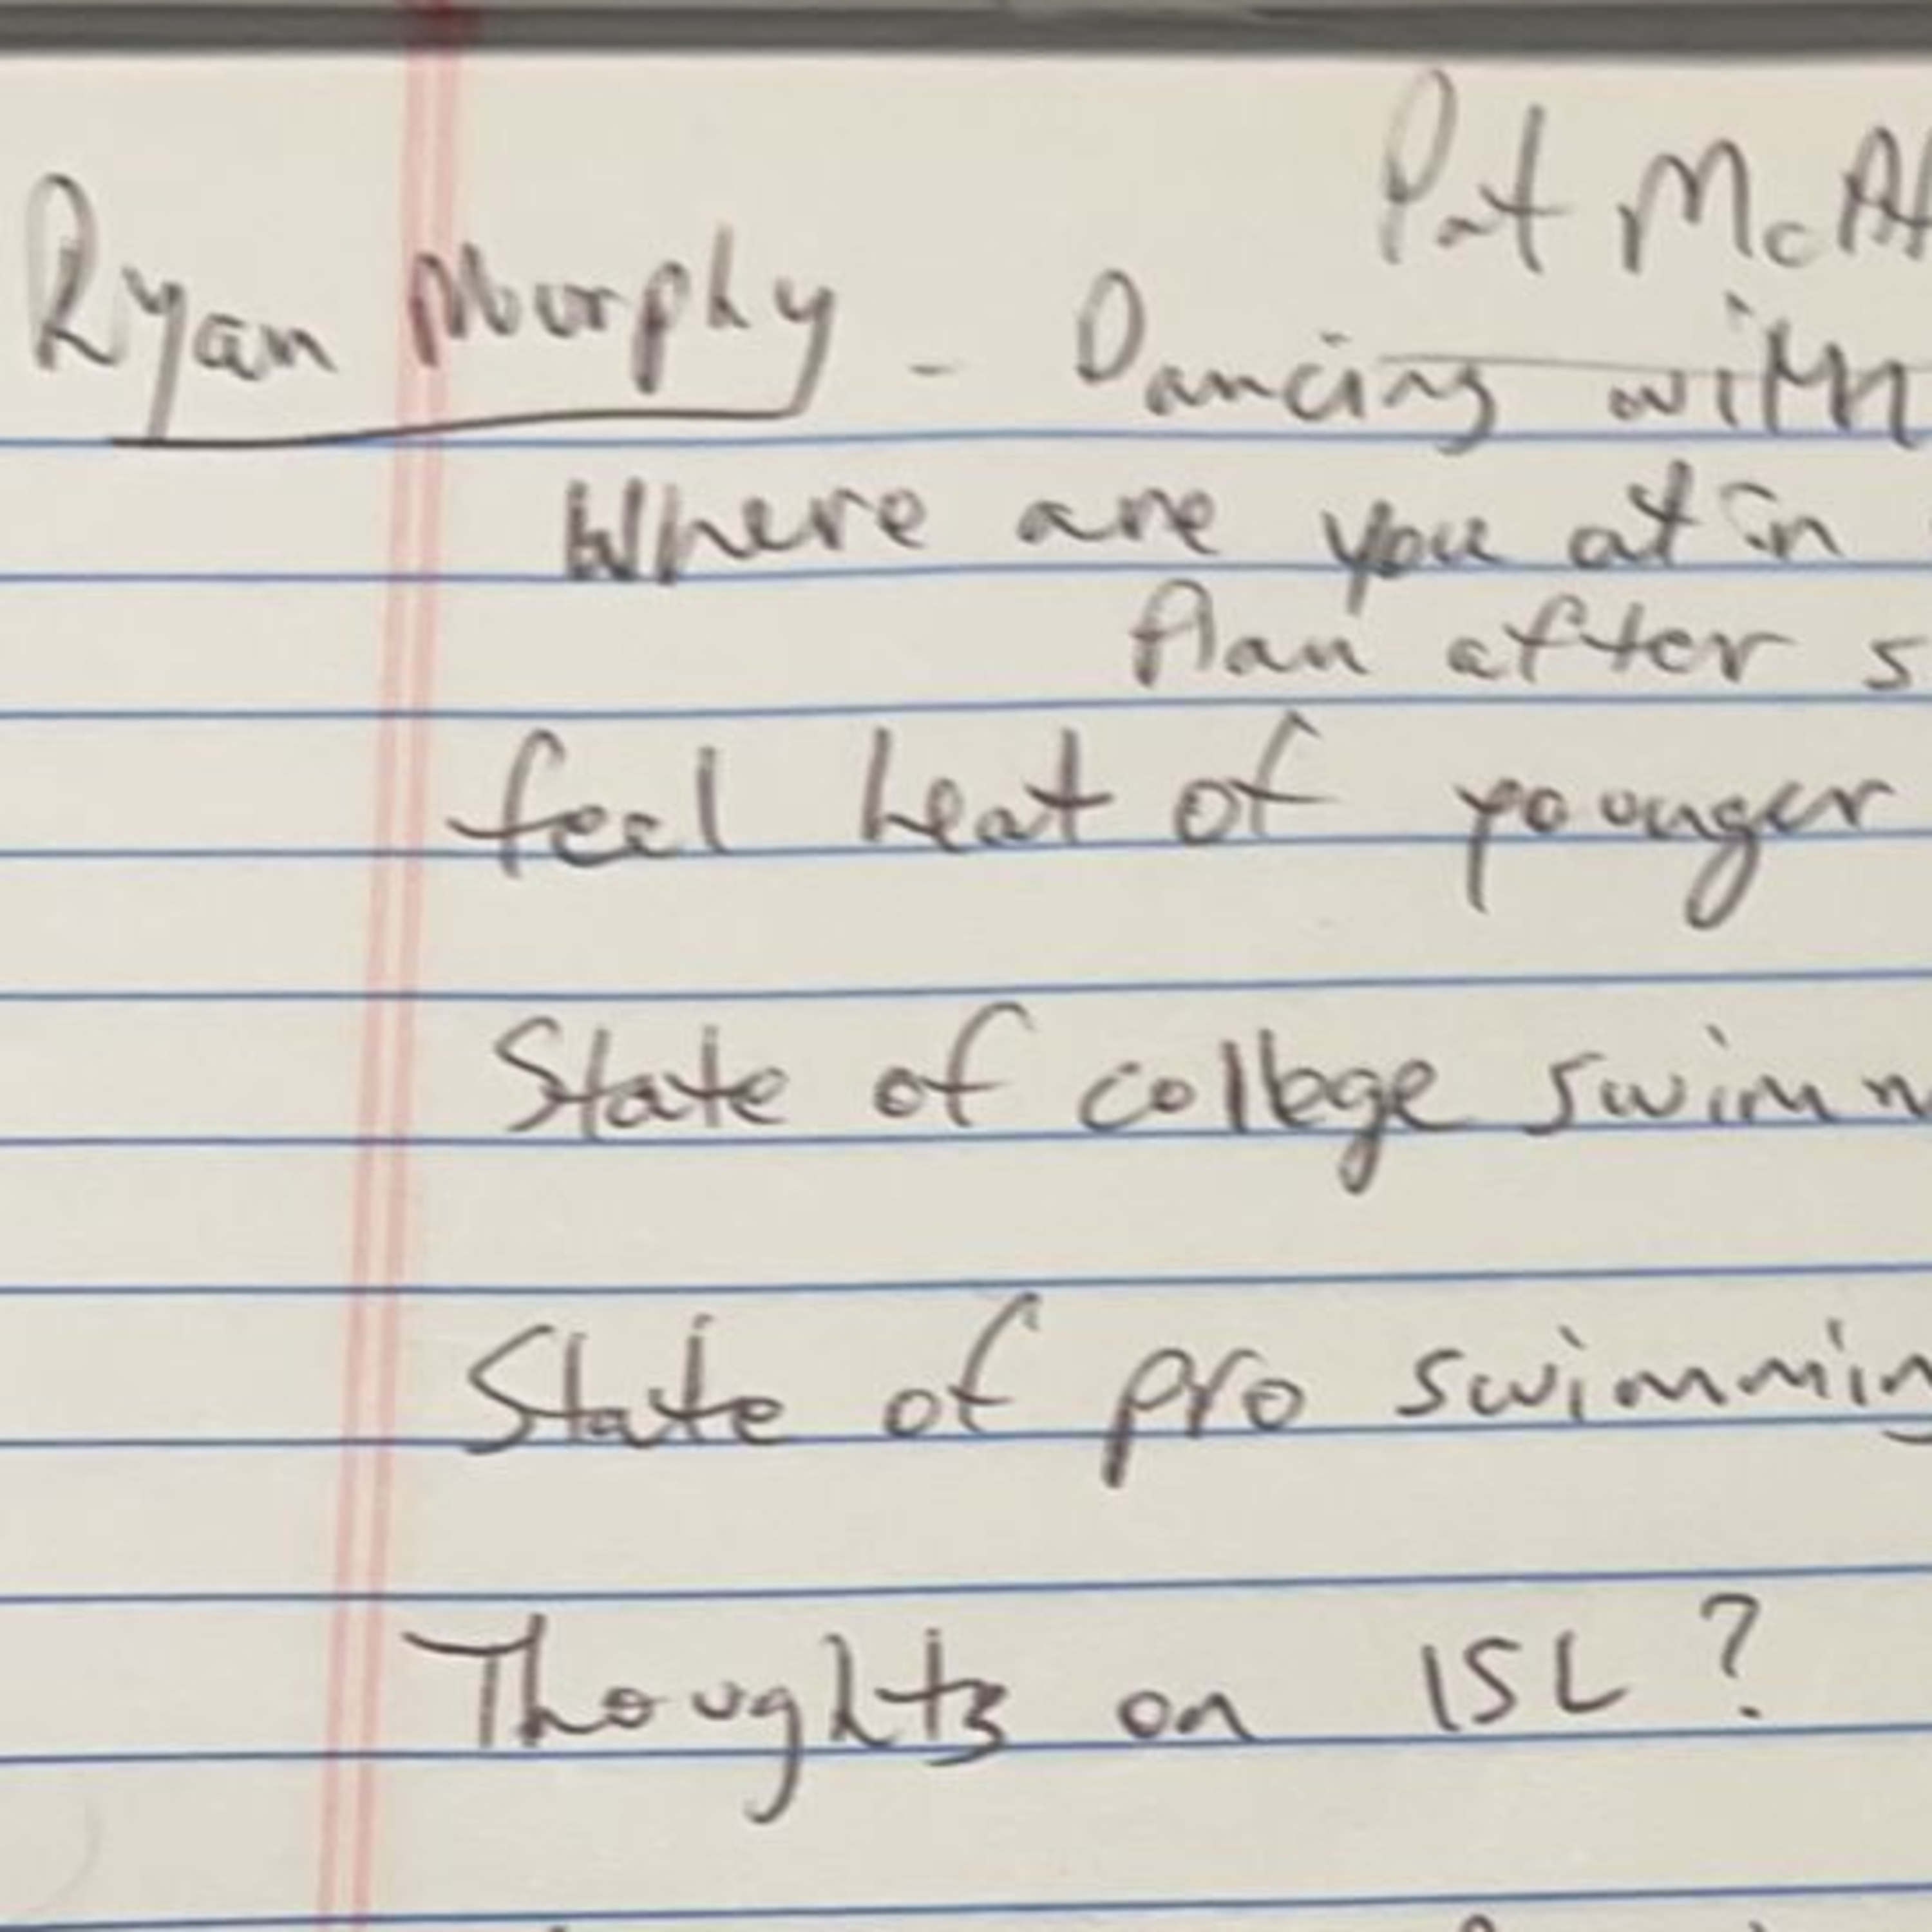 Pat McAf
Ryan Murphy - Dancing with
Where are you at in
Plan after s
feel heat of younger
State of college swimm
State of pro swimming
Thoughts on ISL?